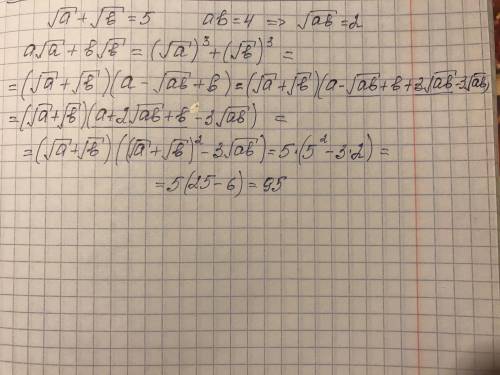 √a + √b = 5    ab = 4 => √ab = 2
a√a + b√b = (√a)³ + (√b)³ =
= (√a + √b)(a - √ab + b) = (√a + √b)(a - √ab + b + 3√ab - 3√ab)
= (√a + √b)(a + 2√ab + b - 3√ab) =
= (√a + √b)((√a + √b)² - 3√ab) = 5·(5² - 3·2) =
= 5(25 - 6) = 95